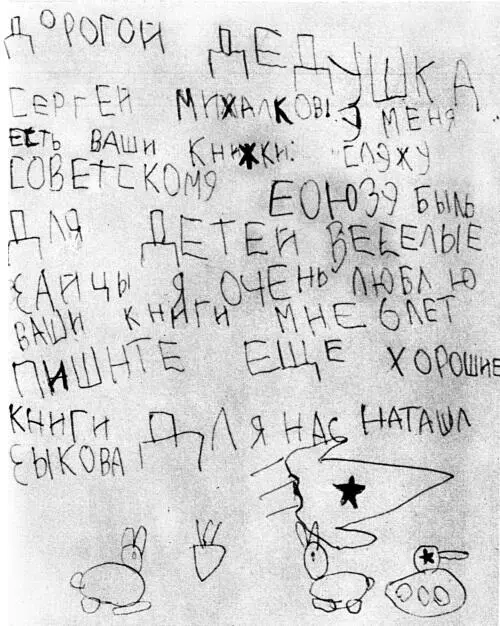 ДОРОГОЙ ДЕДУШКА
СЕРГЕЙ МИХАЛКОВ! У МЕНЯ
ЕСТЬ ВАШИ КНИЖКИ: СЛУЖУ
СОВЕТСКОМУ СОЮЗУ БЫЛЬ
ДЛЯ ДЕТЕЙ ВЕСЕЛЫЕ
ЗАЙЧЫ Я ОЧЕНЬ ЛЮБЛЮ
ВАШИ КНИГИ МНЕ 6 ЛЕТ
ПИШИТЕ ЕЩЕ ХОРОШИЕ
КНИГИ ДЛЯ НАС НАТАША
ЗЫКОВА